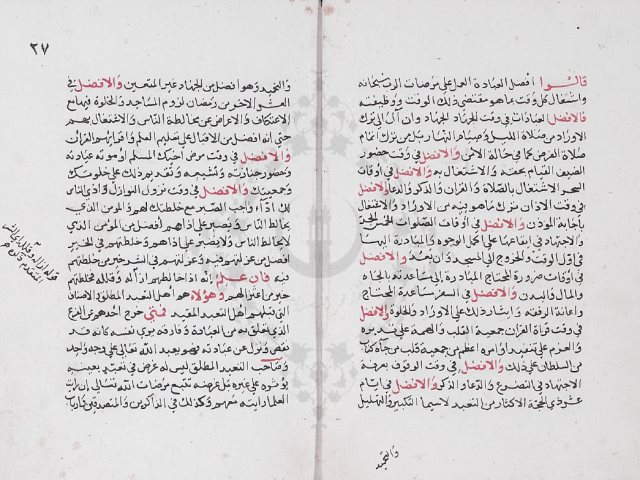 قالوا افضل العبادة العمل على مرضات الرب سبحانه
واشتغال كل وقت بما هو مقتضى ذلك الوقت ووظيفته
فالافضل العبادات في وقت الجهاد الجهاد وان آل الى ترك
الاوراد من صلاة الليل وصيام النهار بل من ترك اتمام
صلاة الفرض كما في حالة الامن والافضل في وقت حضور
الضيف القيام بحقه والاشتغال به والافضل في اوقات
السحر الاشتغال بالصلاة والقران والذكر والدعا والافضل
في وقت الاذان ترك ما هو فيه من الاوراد والاشتغال
باجابة الموذن والافضل في اوقات الصلوات الخمس الجد
والاجتهاد في ايقاعها على اكمل الوجوه والمبادرة اليها
في اول الوقت والخروج الى المسجد وان بعد والافضل
في اوقات ضرورة المحتاج المبادرة الى مساعدته بالجاه
والمال والبدن والافضل في السفر مساعدة المحتاج
واعانة الرفقة وايثار ذلك على الاوراد والخلوة والافضل
في وقت قراة القران جمعية القلب والهمة على تدبره
والعزم على تنفيذ اوامره اعظم من جمعية قلب من جاه كتاب
من السلطان على ذلك والافضل في وقت الوقوف بعرفة
الاجتهاد في التضرع والدعا والذكر والافضل في ايام
عشر ذي الحجة الاكثار من التعبد لاسيما التكبير والتهليل
والتحميد
٢٧
والتحميد وهو افضل من الجهاد غير المتعين والافضل في
العشر الاخير من رمضان لزوم المساجد والخلوة فيها مع
الاعتكاف والاعراض عن مخالطة الناس والاشتغال بهم
حتى انه افضل من الاقبال على تعليم العلم واقرائهم القران
والافضل في وقت مرض اخيك المسلم او موته عيادته
وحضور جنازته وتشييعه وتقديم ذلك على خلوتك
وجمعيتك والافضل في وقت نزول النوازل واذى الناس
لك اداء واجب الصبر مع خلطتك لهم والمومن الذي
يخالط الناس ويصبر على اذاهم افضل من المومن الذي
لا يخالط الناس ولا يصبر على اذاهم وخلطتهم في الخير
افضل من عزلتهم فيه وعزلتهم في الشر خير من خلطتهم
فيه فان علم انه اذا خالطهم ازاله وقلله فخلطتهم
خير من اعتزالهم وهؤلاء هم اهل التعبد المطلق والاصناف
التي قبلهم اهل التعبد المقيد فمتى خرج احدهم من الفرع
الذي تعلق به من العبادة وفارقه يرى نفسه كانه قد
نقص ونزل عن عبادته فهو يعبد الله تعالى على وجه واحد
وصاحب التعبد المطلق ليس له غرض في تعبد بعينه
يؤثره على غيره بل غرضه تتبع مرضات الله تعالى ان رايت
العلما رايته معهم وكذلك في الذاكرين والمتصدقين وارباب